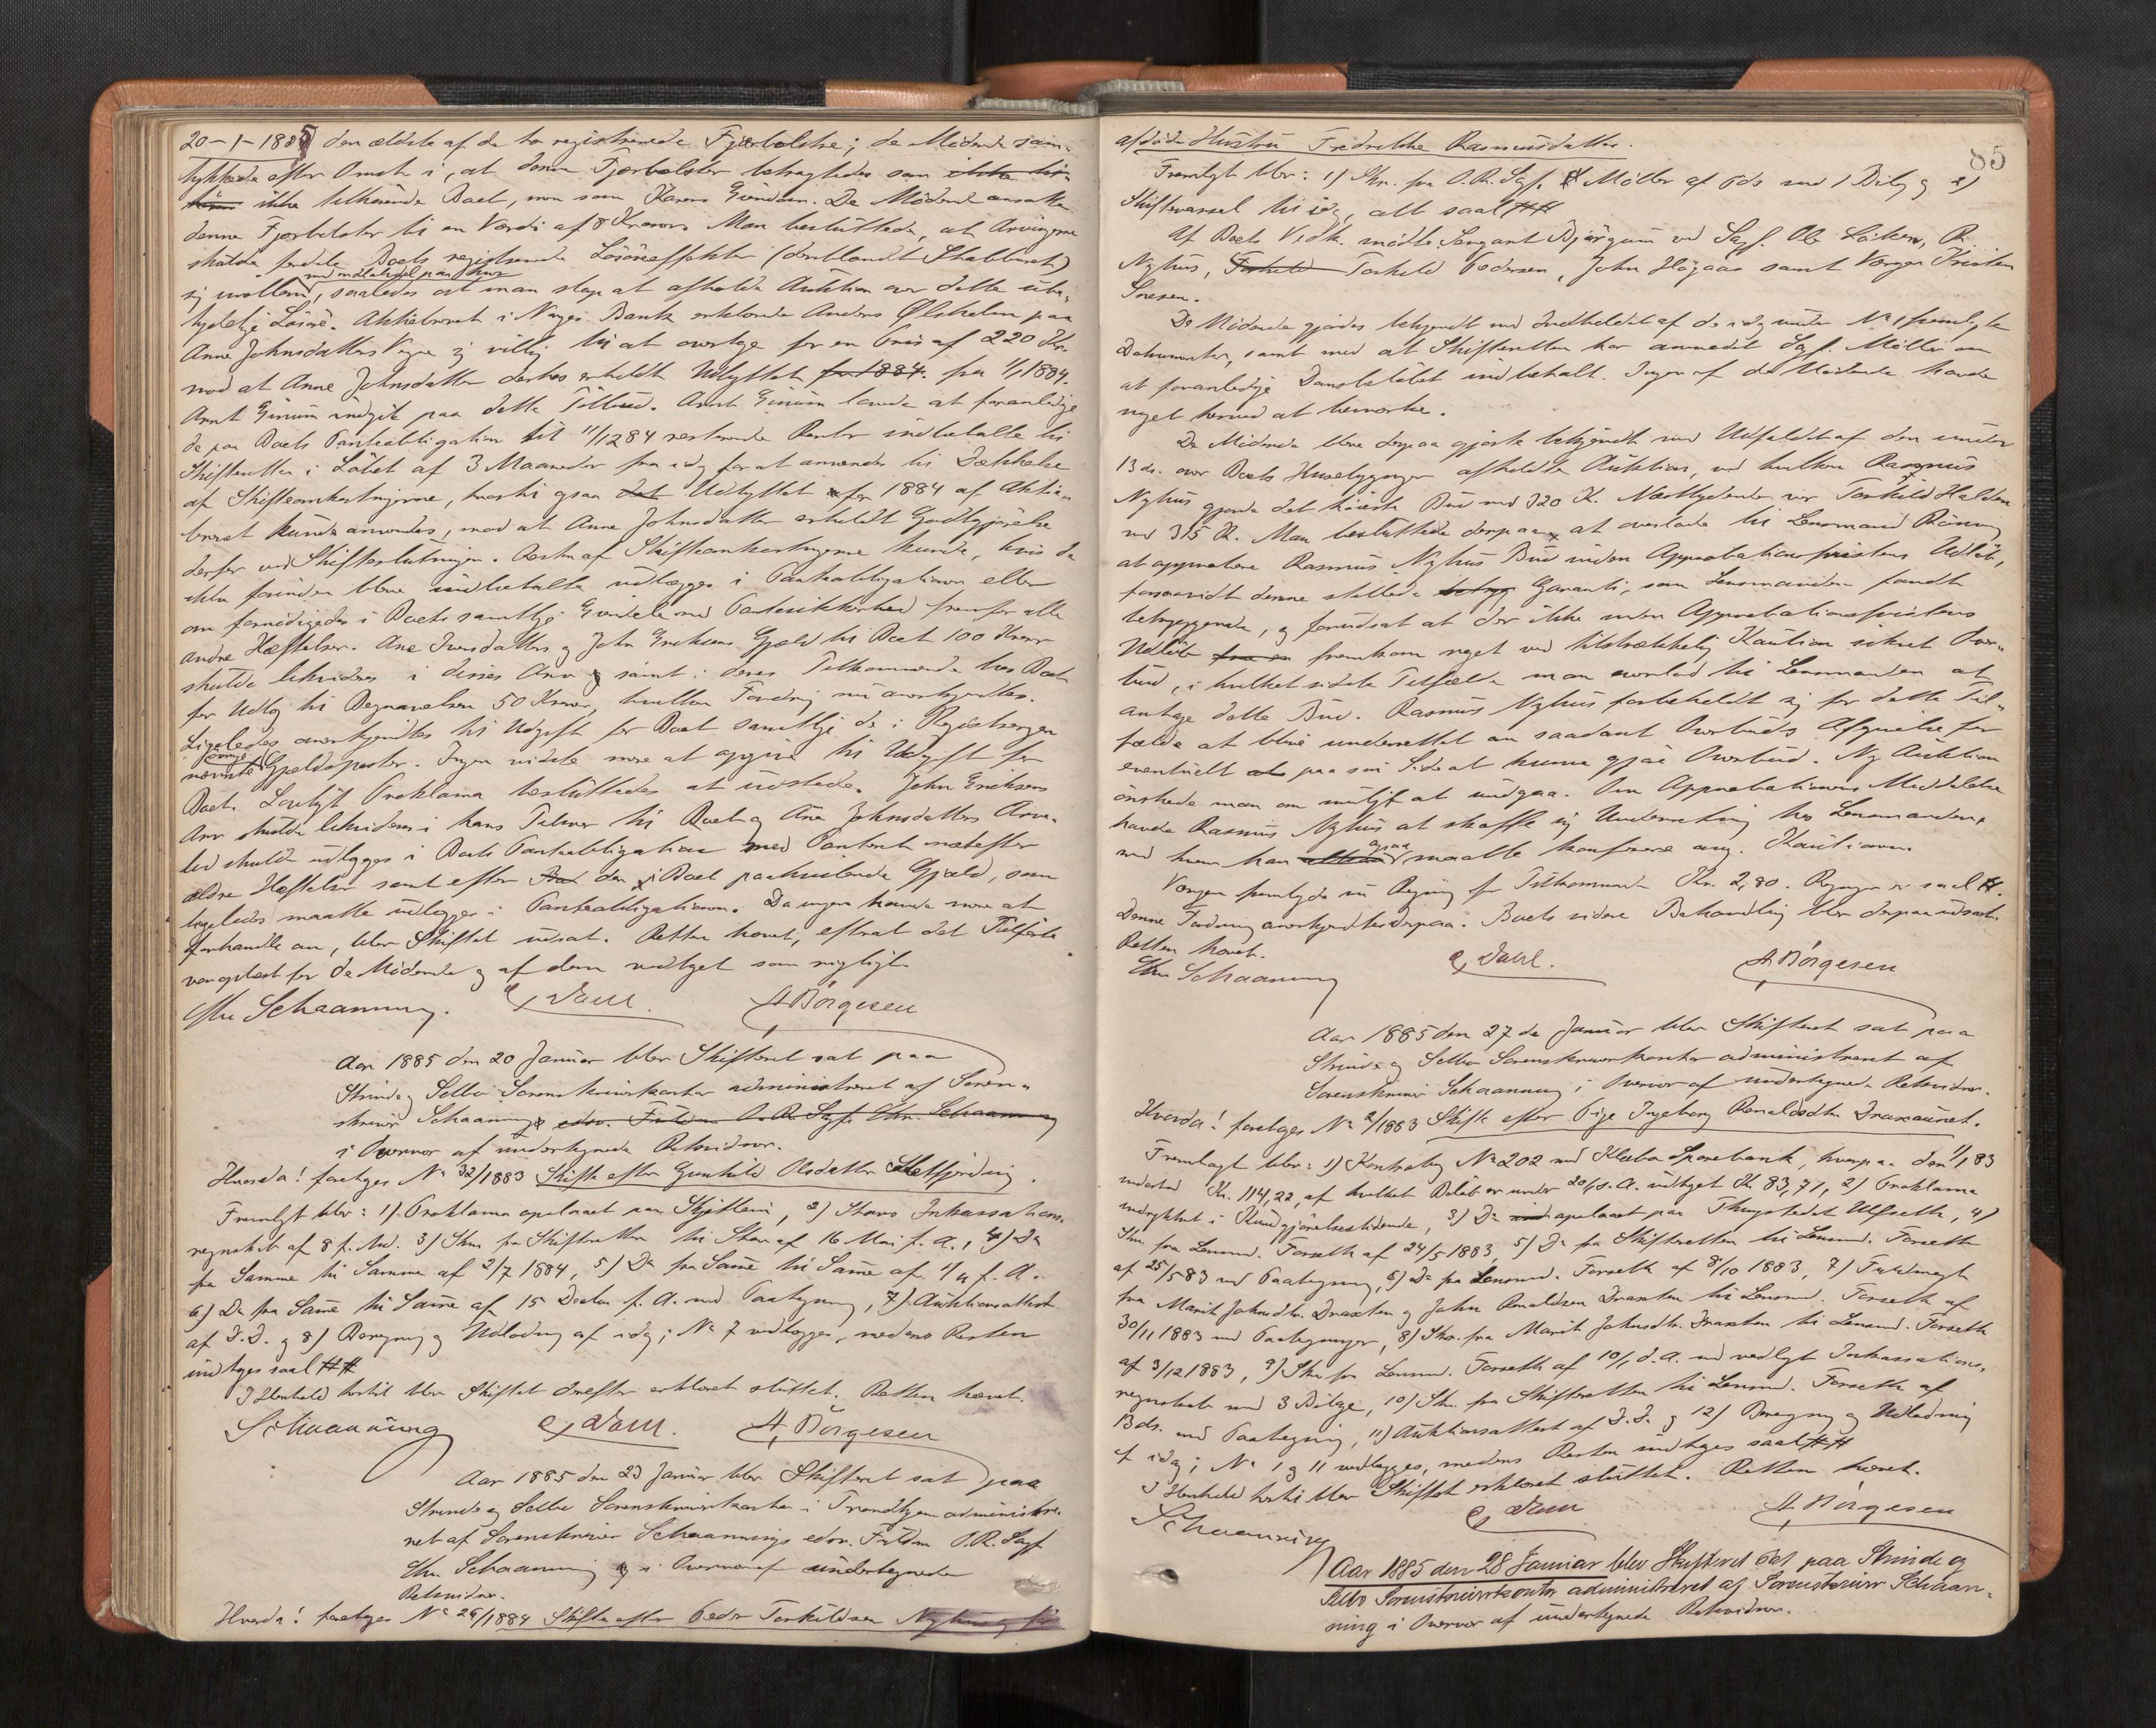 20-1-1885 den ældste af de to registrerede Fjærbolstre; de Mödende sam-
tykkede efter Omst. i, at denne Fjærbolster betragtedes som
ikke tilhörende Boet, men som Karens Eiendom. De Mödende ansatte
denne Fjærbolster til en Værdi af 8 Kroner. Man besluttede, at Arvingerne
skulde fordele Boets registrerede Lösöreeffekter (deriblandt Stabburet)
sig imellem, saaledes at man slap at afholde Auktion over dette ube-
tydelige Lösöre. Aktiebrevet i Norges Bank erklærede Anders Ølshølm paa
Anne Johnsdatters Vegne sig villig til at overtage for en Pris af 220 Kr.
mod at Anne Johnsdatter derhos erholdt Udbyttet for 1884. fra 1/1 1884.
Arnt Grinum indgik paa dette Tilbud. Arnt Grinum lovede at foranledige
de paa Boets Panteobligation til 11/12 84 resterende Renter indbetalte til
Skifteretten i Löbet af 3 Maaneder fra idag for at anvendes til Dækkelse
af Skifteomkostningerne, hvortil ogsaa det Udbyttet for 1884 af Aktie-
brevet kunde anvendes, mod at Anne Johnsdatter erholdt Godtgjörelse
derfor ved Skifteslutningen. Resten af Skifteomkostningerne kunde, hvis de
ikke forinden bleve indbetalte udlægges i Panteobligationen eller
om fornödiges i Boets samtlige Eiendele med Pantesikkerhed fremfor alle
andre Hæftelser. Ane Iversdatters og John Eriksens Gjæld til Boet 100 Kroner
skulde likvideres i disses Arv samt i deres Tilkommende hos Boet
for Udlæg til Begravelsen 50 Kroner, hvilken Fordring nu anerkjendtes.
Ligeledes anerkjendtes til Udgift for Boet samtlige de i Registreringen
nævnte övrige Gjældsposter. Ingen vidste mere at opgive til Udgift for
Boet. Lovligt Proklama besluttedes at udstede. John Eriksens
Arv skulde likvideres i hans Tilsvar til Boet og Ane Johnsdatters Arve-
lod skulde udlægges i Boets Panteobligation med Panteret næstefter
ældre Hæftelser samt efter den i Boet paahvilende Gjæld, som
ligeledes maatte udlægges i Panteobligationen. Da ingen havde mere at
forhandle om, blev Skiftet udsat. Retten hævet, efterat det Tilförte
var oplæst for de Mödende og af dem vedtaget som rigtigt.
Chr Schaanning. E Dahl. A Börgesen
Aar 1885 den 20 Januar blev Skifteret sat paa
Strinde og Selbu Sorenskriverkontor administreret af Soren-
skriver Schaanning edsv. Fuldm. O.R. Sagf. Chr. Schaanning
i Overvær af undertegnede Retsvidner.
Hvorda! foretages No 32/1883 Skifte efter Gunhild Olsdatter Sletfjerding.
Fremlagt blev: 1) Proklama oplæst paa Thingstein, 2) Storvs Inkassations-
regnskab af 8 f. Md. 3) Skr. fra Skifteretten til Storv af 16 Mai f. A., 4) Do
fra Samme til Samme af 2/7 1884, 5) Do fra Samme til Samme af f. A.
6) Do fra Samme til Samme af 15 Decbr f. A. med Paategning, 7) Auktionsattest
af D. D. og 8) Beregning og Udlodning af idag; No 7 vedlægges, medens Resten
indtages saal ##
I Henhold hertil blev Skiftet derefter erklæret sluttet. Retten hævet.
Schaanning E Dahl. A. Börgesen
Aar 1885 den 23 Januar blev Skifteret sat paa
Strinde og Selbu Sorenskriverkontor i Trondhjem administre-
ret af Sorenskriver Schaannings edsv. Fuldm. O.R. Sagf.
Chr. Schaanning i Overvær af undertegnede
Retsvidner.
Hvorda! foretages No 26/1884 Skifte efter Peder Torkildsen Nyhus og
85
afdöde Hustru Fredrikke Rasmusdatter.
Fremlagt blev: 1) Skr. fra O.R. Sagf. Möller af 6ds med 1 Bilag og 2)
Skiftevarsel til idag, alt saal ##
Af Boets Vedk. mödte Sergeant Bjørgum ved Sagf. Ole Löcken, R.
Nyhus, Torkild Pedersen, John Höjaas samt Værgen Kristen
Snesen.
De Mödende gjordes bekjendt med Indholdet af de idag under No 1 fremlagte
Dokumenter, samt med at Skifteretten har anmodet Sagf. Möller om
at foranledige Dansbelöbet indbetalt. Ingen af de Mödende havde
noget herved at bemærke.
De Mödende bleve derpaa gjorte bekjendt med Udfaldet af den under
13 ds. over Boets Husebygninger afholdte Auktion, ved hvilken Rasmus
Nyhus gjorde det höieste Bud med 320 K. Næstbydende var Torkild Halden
med 315 K. Man besluttede derpaa at overlade til Lensmand Rönning
at approbere Rasmus Nyhus' Bud inden Approbationsfristens Udlöb,
forsaavidt denne stillede Garanti, som Lensmanden fandt
betryggende, og forudsat at der ikke inden Approbationsfristens
Udlöb fremkom noget ved tilstrækkelig Kaution sikret Over-
bud, i hvilket sidste Tilfælde man overlod til Lensmanden at
antage dette Bud. Rasmus Nyhus forbeholdt sig for dette Til-
fælde at blive underrettet om saadant Overbuds Afgivelse for
eventuelt paa sin Side at kunne gjöre Overbud. Ny Auktion
önskede man om muligt at undgaa. Om Approbationens Meddelelse
havde Rasmus Nyhus at skaffe sig Underretning hos Lensmanden,
med hvem han ogsaa maatte konferere ang. Kautionen.
Værgen fremlagde nu Regning for Tilkommende Kr. 2,80. Regningen er saal #.
Denne Fordring anerkjendtes derpaa. Boets videre Behandling blev derpaa udsat.
Retten hævet.
Chr Schaanning E Dahl. A Börgesen
Aar 1885 den 27 de Januar blev Skifteret sat paa
Strinde og Selbu Sorenskriverkontor administreret af
Sorenskriver Schaanning i Overvær af undertegnede Retsvidner.
Hvorda! foretages No 2/1883 Skifte efter Pige Ingeborg Ronaldsdtr. Draxaunet.
Fremlagt blev: 1) Kontrabog No 202 med Klæbu Sparebank, hvorpaa den 1/1 83
indestod Kr. 114,22, af hvilket Belöb er under 20/1 d. A. udtaget Kr. 83,71, 2) Proklama
indrykket i Kundgjörelsestidende, 3) Do oplæst paa Thingstedet Ulseth, 4)
Skr. fra Lensmd. Forseth af 24/5 1883, 5) Do fra Skifteretten til Lensmd. Forseth
af 25/5 83 med Paategning, 6) Do fra Lensmd. Forseth af 8/10 1883, 7) Fuldmagt
fra Marit Johnsdtr. Draxten og John Ronaldsen Draxten til Lensmd. Forseth af
30/11 1883 med Paategninger, 8) Skr. fra Marit Johnsdtr. Draxten til Lensmd. Forseth
af 3/12 1883, 9) Skr. fra Lensmd. Forseth af 10/1 d. A. med vedlagt Inkassations-
regnskab med 3 Bilage, 10) Skr. fra Skifteretten til Lensmd. Forseth af
13 ds. med Paategning, 11) Auktionsattest af D. D. og 12) Beregning og Udlodning
af idag; No 1 og 11 vedlægges, medens Resten indtages saal ##
I Henhold hertil blev Skiftet erklæret sluttet. Retten hævet.
Schaanning E Dahl A. Börgesen
Aar 1885 den 28 Januar blev Skifteret sat paa Strinde og
Selbu Sorenskriverkontor administreret af Sorenskriver Schaan-
ning i Overvær af undertegnede Retsvidner.